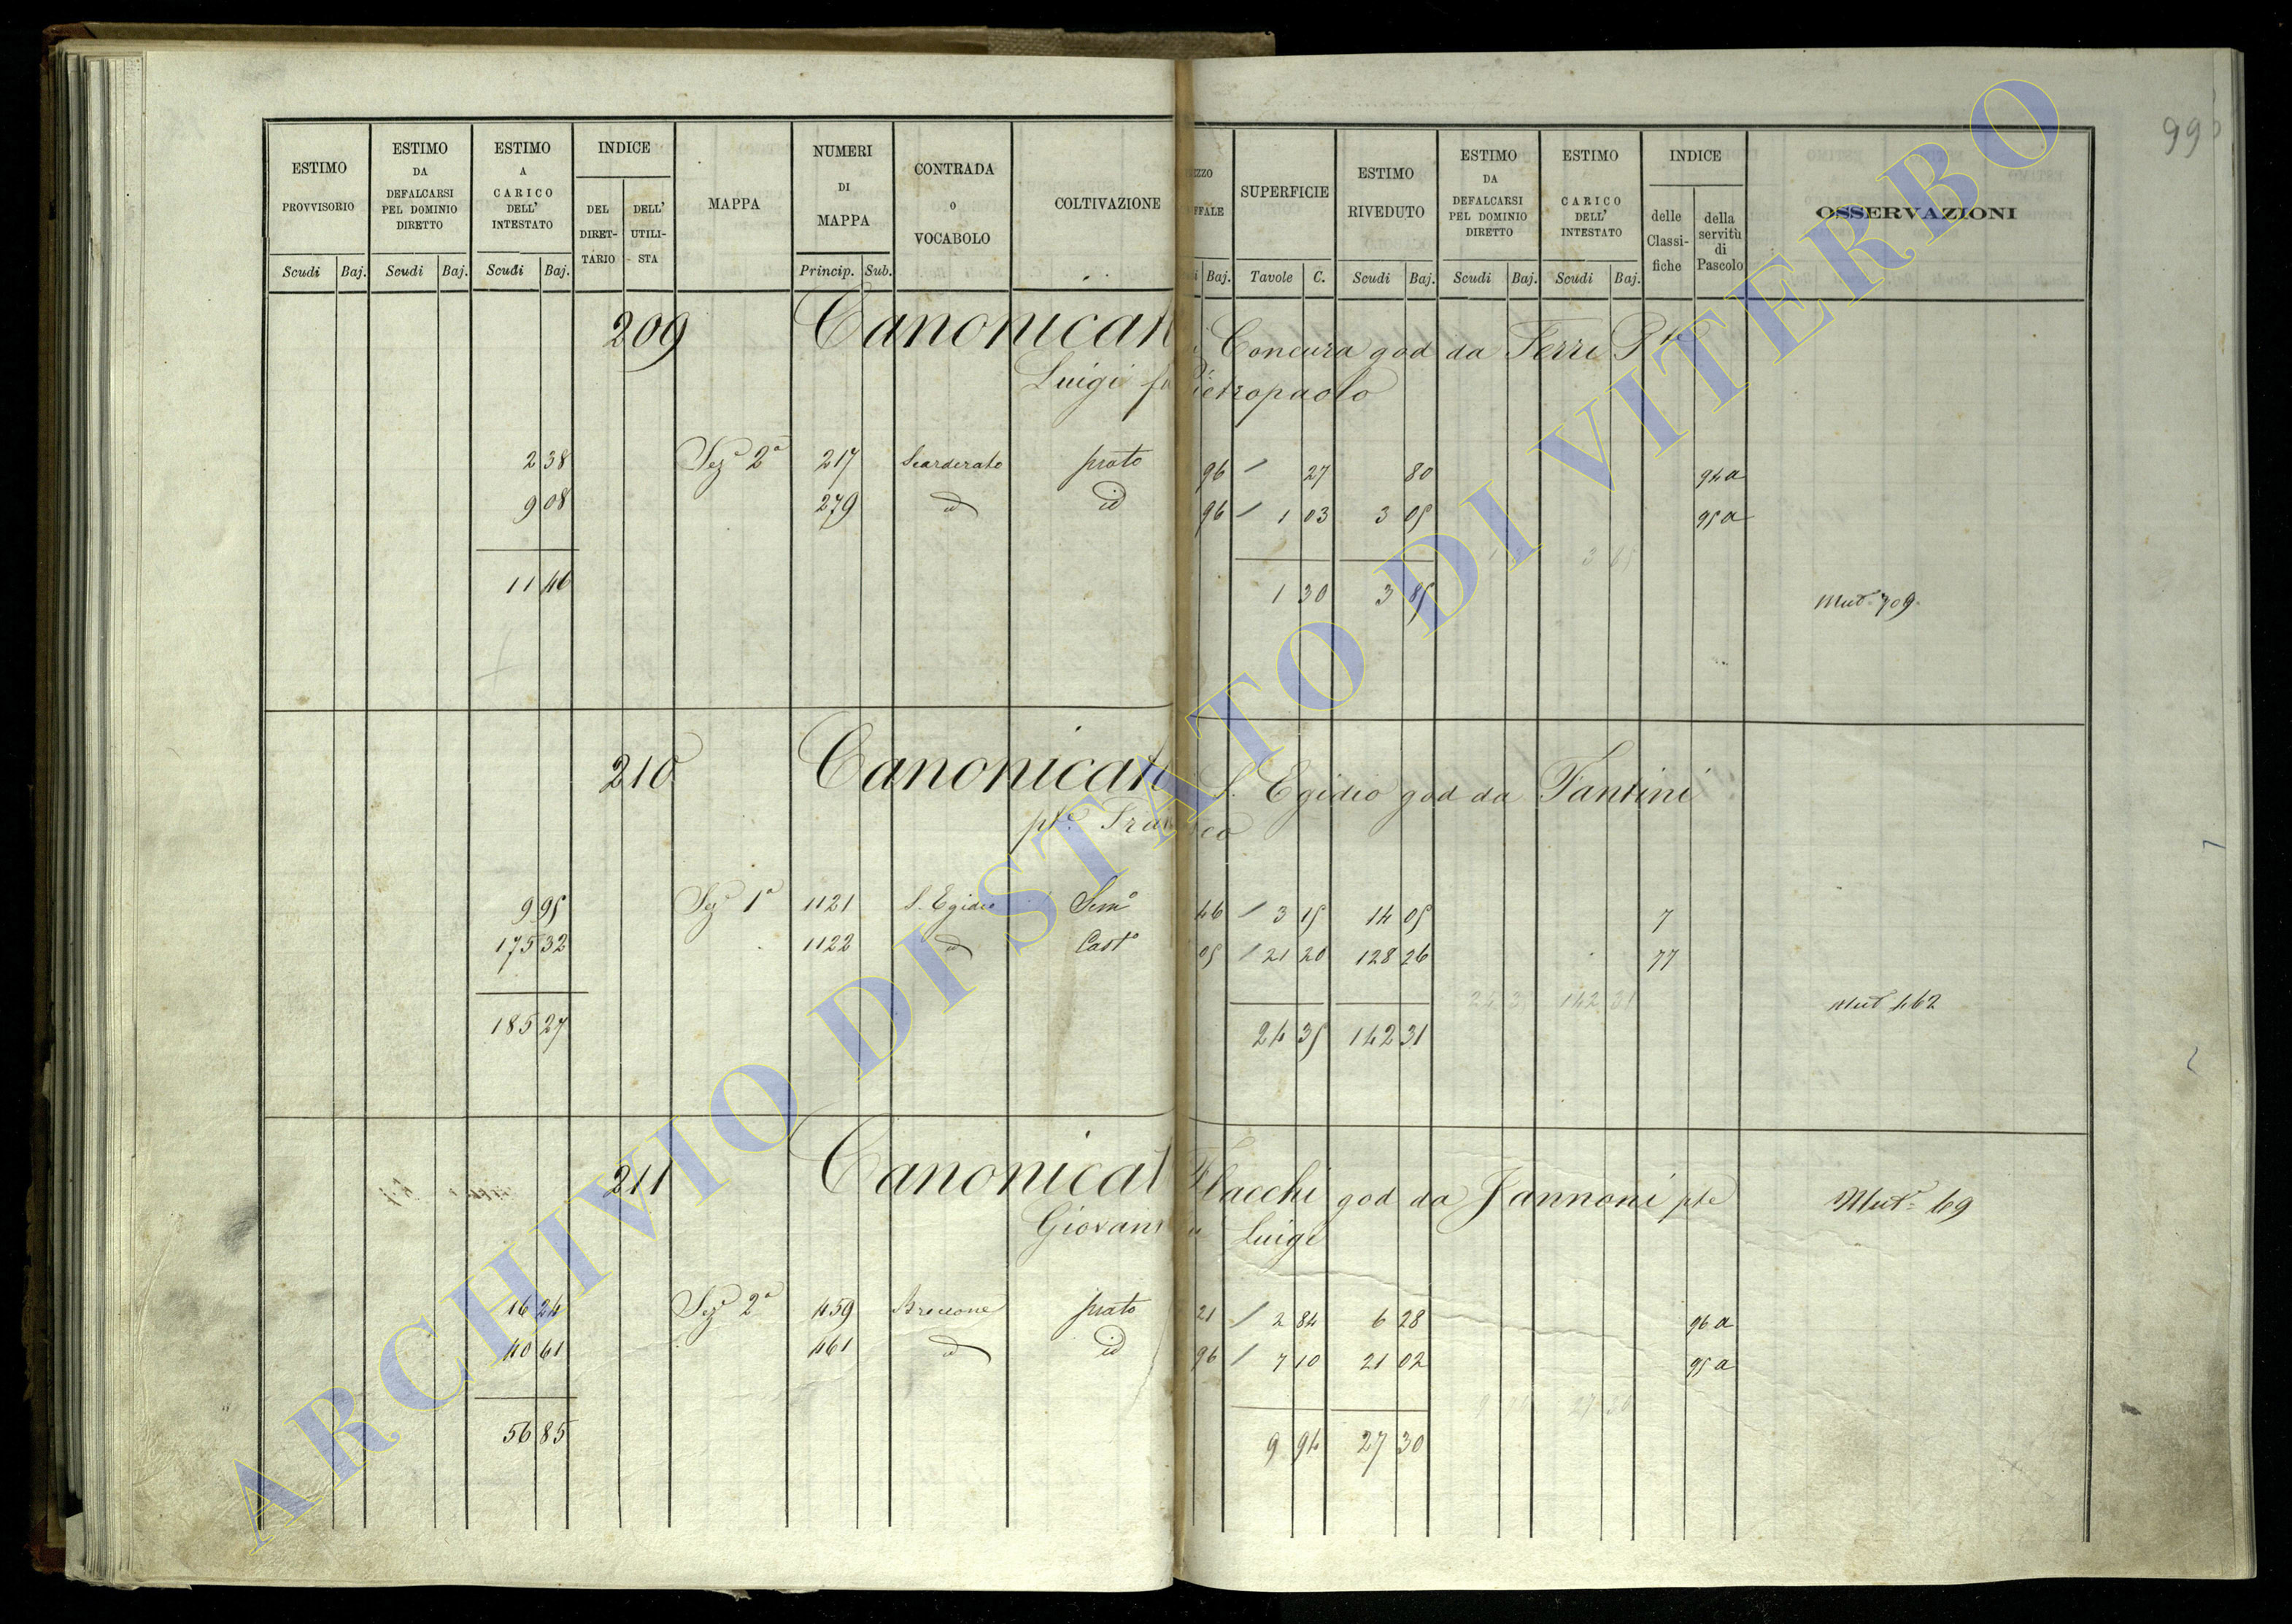 99
ESTIMO PROVVISORIO
ESTIMO DA DEFALCARSI PEL DOMINIO DIRETTO
ESTIMO A CARICO DELL' INTESTATO
INDICE
DEL DIRET-TARIO
DELL' UTILI-STA
MAPPA
NUMERI DI MAPPA
CONTRADA O VOCABOLO
COLTIVAZIONE
SUPERFICIE
ESTIMO RIVEDUTO
ESTIMO DA DEFALCARSI PEL DOMINIO DIRETTO
ESTIMO CARICO DELL' INTESTATO
INDICE
delle Classi-fiche
della servitù di Pascolo
OSSERVAZIONI
Scudi Baj. Scudi Baj. Scudi Baj. Princip. Sub. Baj. Tavole C. Scudi Baj. Scudi Baj. Scudi Baj.
209 Canonicat Concura god da Ferri Pte
Luigi fu Pietropaolo
2 38 Sez.a 2a 217 Scarderato prato 96 / 27 80 94a
9 08 279 id id 96 / 1 03 3 05 95a
11 46 1 30 3 85 Mut. 709.
210 Canonicat S. Egidio god da Fantini
pte. Francesco
9 95 Sez.a 1a 1121 S. Egidio Sem.o 46 / 3 15 14 05 7
175 32 1122 id Cast.o 05 / 21 20 128 26 77
142 31
185 27 24 35 142 31 Mut 462
211 Canonicat Flacchi god da Jannoni pte
Giovanni Luigi
Mut. 69
16 24 Sez.a 2a 459 Breccone prato 21 / 2 84 6 28 96a
40 61 461 id id 96 / 7 10 21 02 95a
27 30
56 85 9 94 27 30
ARCHIVIO DI STATO DI VITERBO